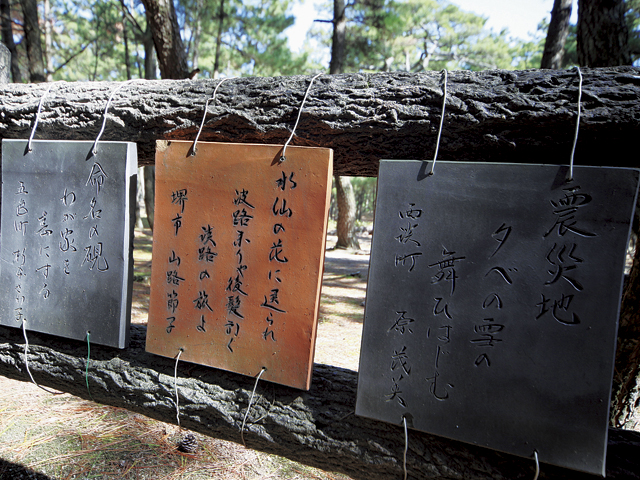 震災地
夕べの雪の
舞ひはじむ
西淡町 原茂美
水仙の花に送られ
波路 後髪引く
淡路の旅よ
堺市 山路節子
命名の硯
わが家を
にする
五色町